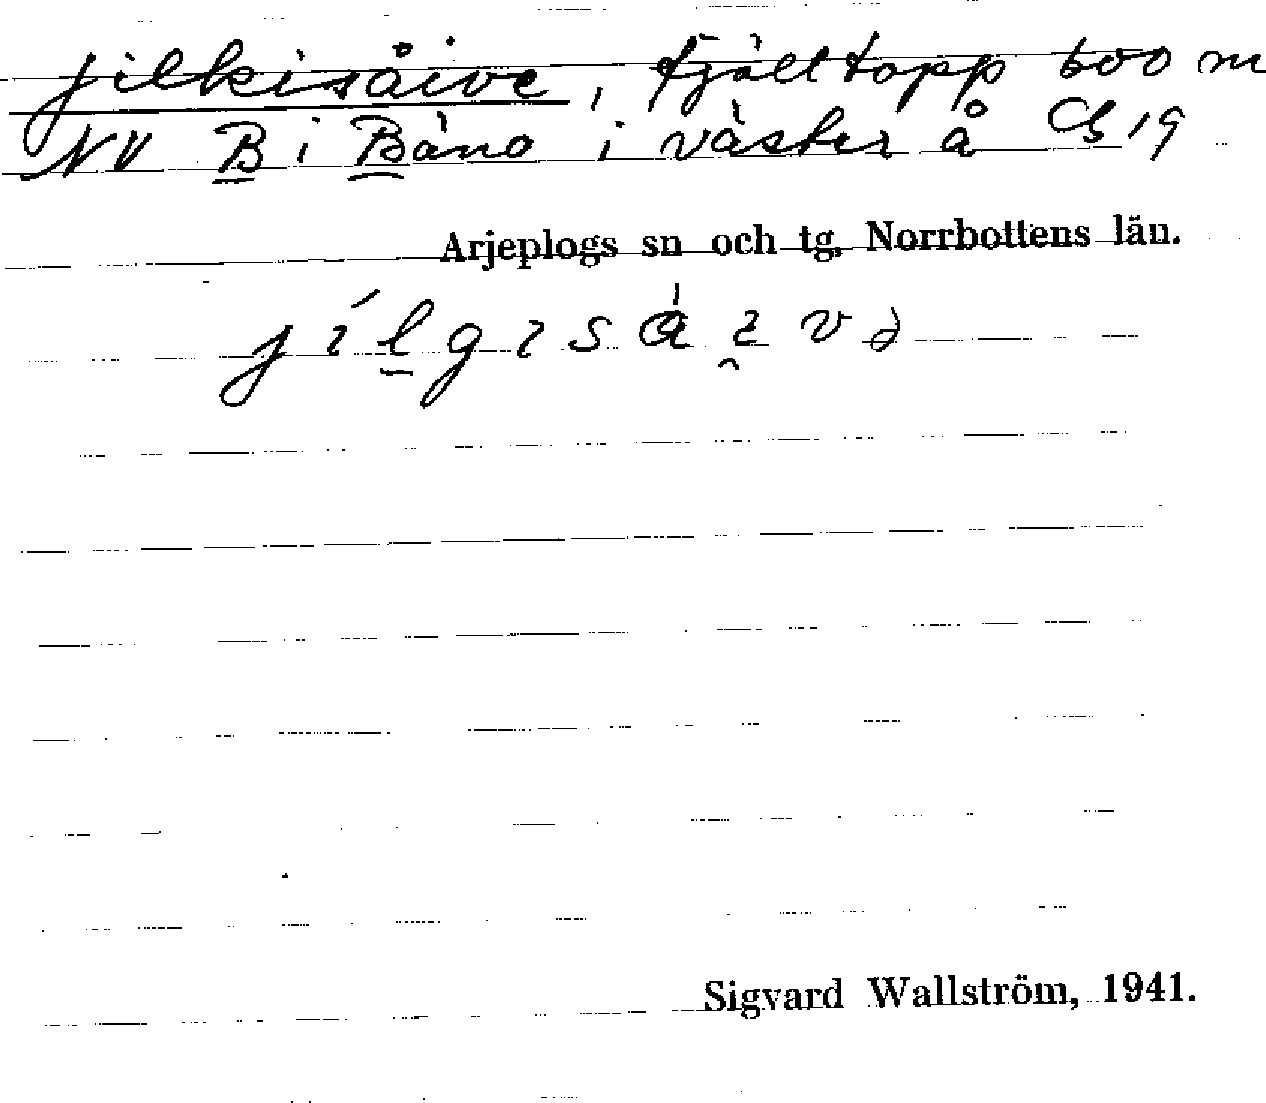 jilkisåive, fjälltopp 600 m
NV B i Båno i väster å G 19
Arjeplogs sn och tg, Norrbottens län.
jílgɪsàɪvə
Sigvard Wallström, 1941.